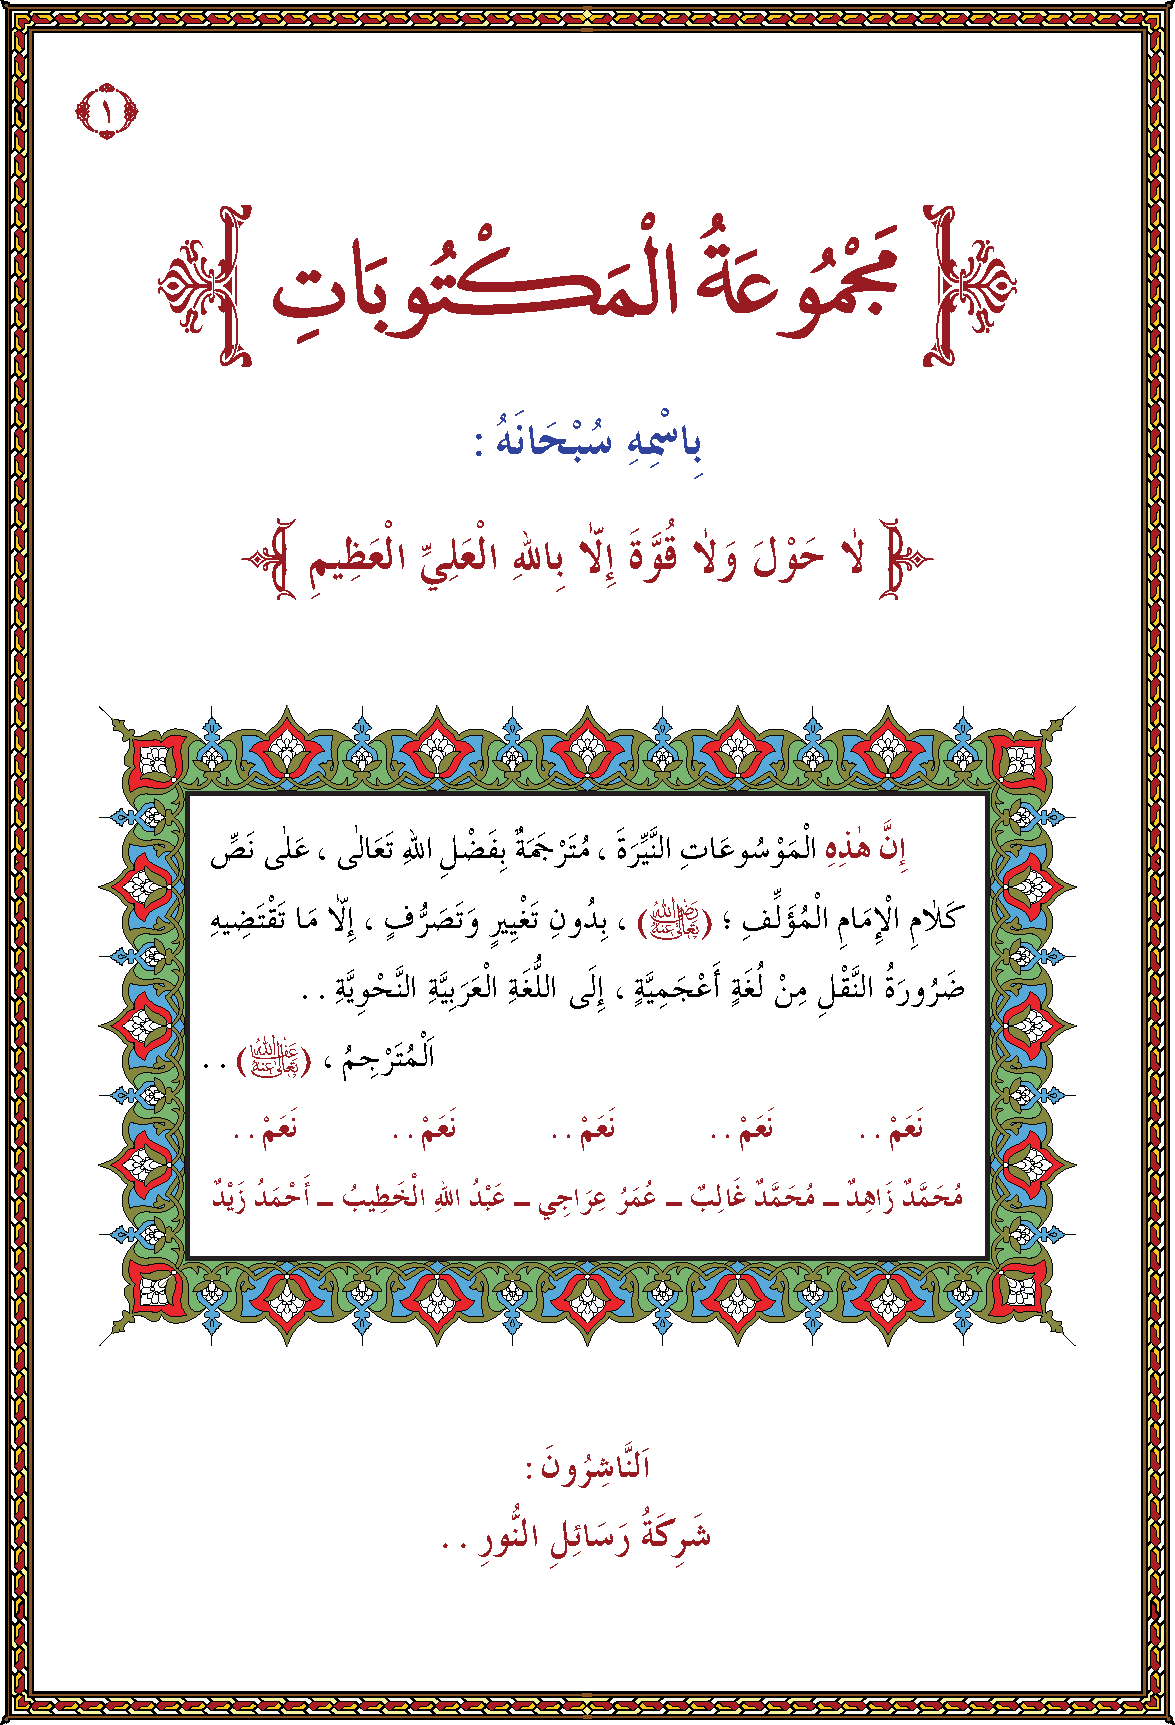 ١
مَجْمُوعَةُ الْمَكْتُوبَاتِ
بِاسْمِهِ سُبْحَانَهُ :
لَا حَوْلَ وَلَا قُوَّةَ إِلَّا بِاللهِ الْعَلِيِّ الْعَظِيمِ
إِنَّ هٰذِهِ الْمَوْسُوعَاتِ النَّيِّرَةَ ، مُتَرْجَمَةٌ بِفَضْلِ اللهِ تَعَالٰى ، عَلٰى نَصِّ
كَلَامِ الْإِمَامِ الْمُؤَلِّفِ ؛ (رَضِيَ اللهُ تَعَالٰى عَنْهُ) ، بِدُونِ تَغْيِيرٍ وَتَصَرُّفٍ ، إِلَّا مَا تَقْتَضِيهِ
ضَرُورَةُ النَّقْلِ مِنْ لُغَةٍ أَعْجَمِيَّةٍ ، إِلَى اللُّغَةِ الْعَرَبِيَّةِ النَّحْوِيَّةِ . .
اَلْمُتَرْجِمُ ، (عَفَا اللهُ تَعَالٰى عَنْهُ) . .
نَعَمْ . . نَعَمْ . . نَعَمْ . . نَعَمْ . . نَعَمْ . .
مُحَمَّدٌ زَاهِدٌ ـ مُحَمَّدٌ غَالِبٌ ـ عُمَرُ عِرَاجِي ـ عَبْدُ اللهِ الْخَطِيبُ ـ أَحْمَدُ زَيْدٌ
اَلنَّاشِرُونَ :
شَرِكَةُ رَسَائِلِ النُّورِ . .